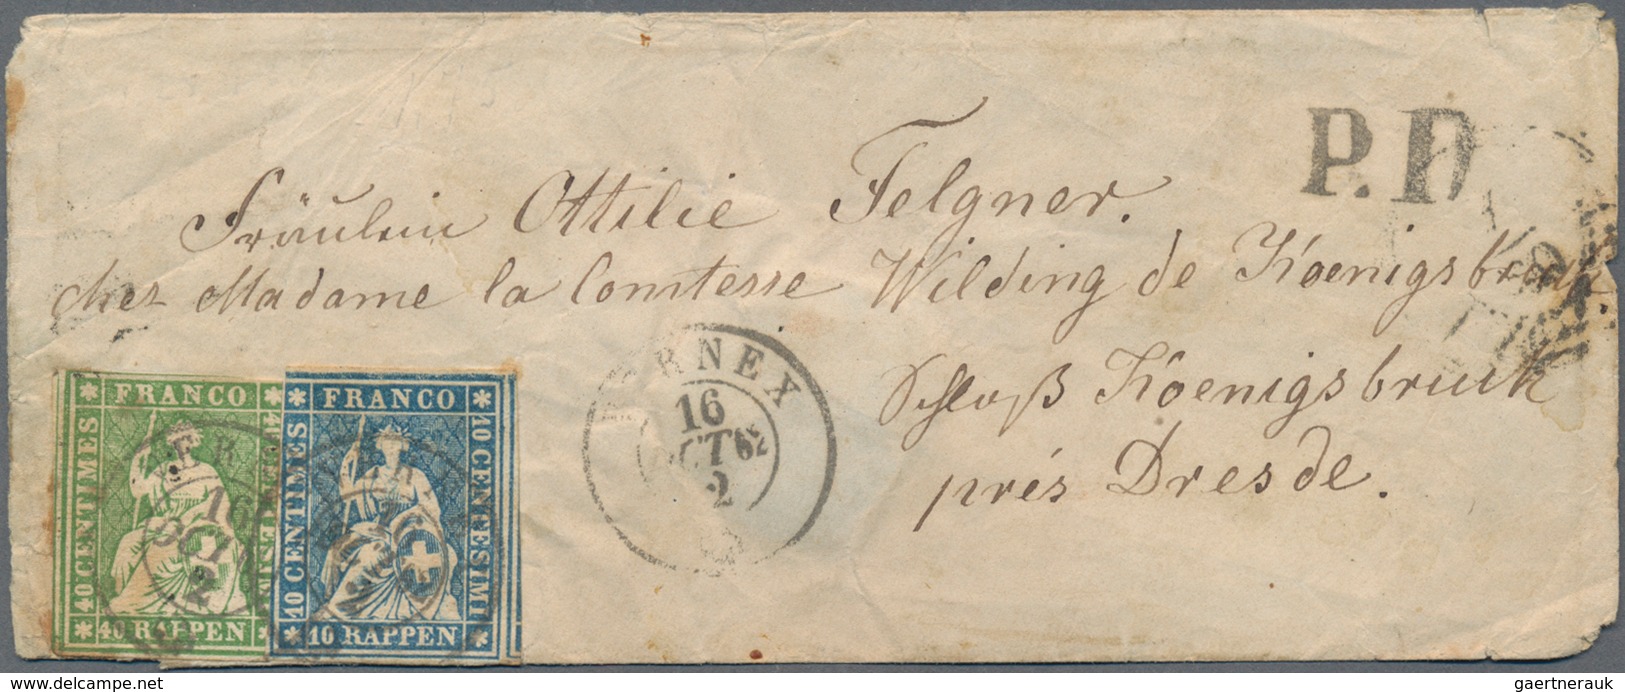 P.D
Fräulein Ottilie Felgner.
chez Madame la Comtesse Wilding de Koenigsbruck.
Schloß Koenigsbruck
près Dresde.
RNEX
16
OCT 62
2
FRANCO
40 CENTIMES
40 RAPPEN
16
OCT
2
FRANCO
10 CENTIMES
10 CENTESIMI
10 RAPPEN
www.delcampe.net
gaertnerauk